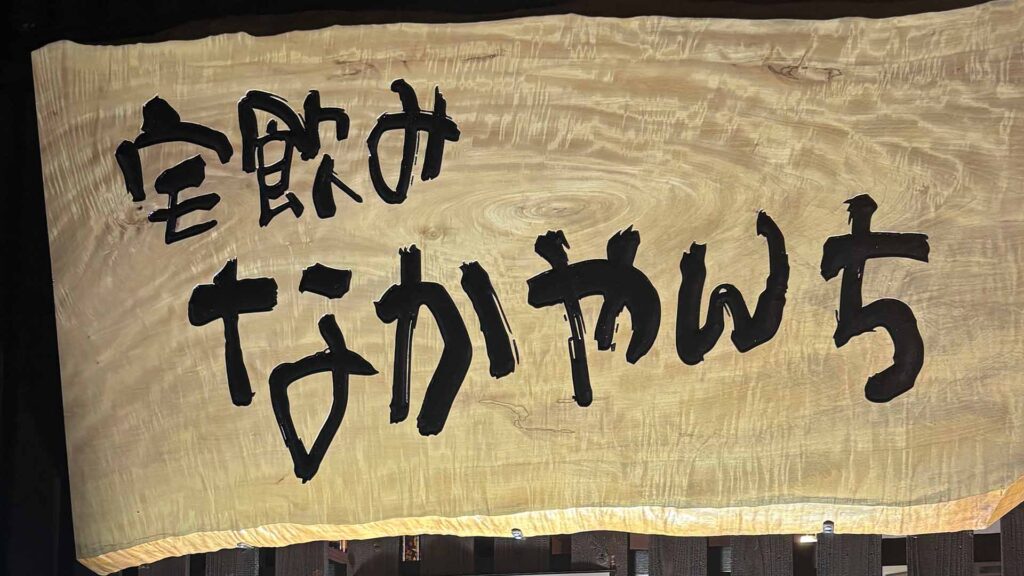 宅飲み
なかやんち